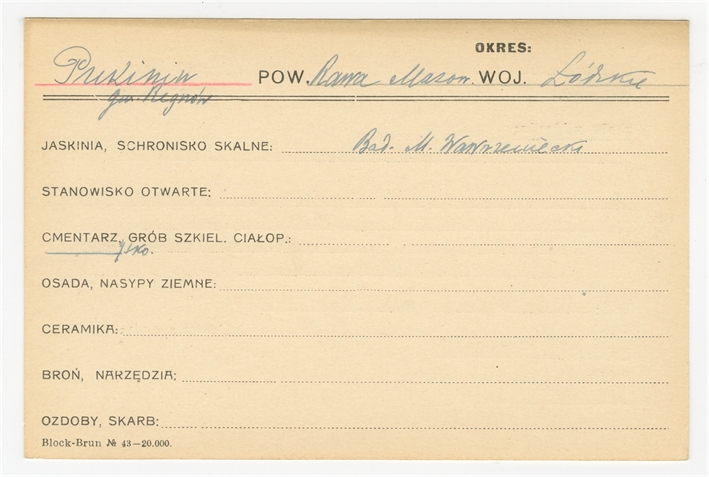 OKRES:
Pukinin POW. Rawa Mazow. WOJ. Łódzkie
gm. Regnów
JASKINIA, SCHRONISKO SKALNE: Bad. M. Wawrzeniecki
STANOWISKO OTWARTE:
CMENTARZ, GRÓB SZKIEL. CIAŁOP.:
ysko.
OSADA, NASYPY ZIEMNE:
CERAMIKA:
BROŃ, NARZĘDZIA:
OZDOBY, SKARB:
Block-Brun № 43—20.000.